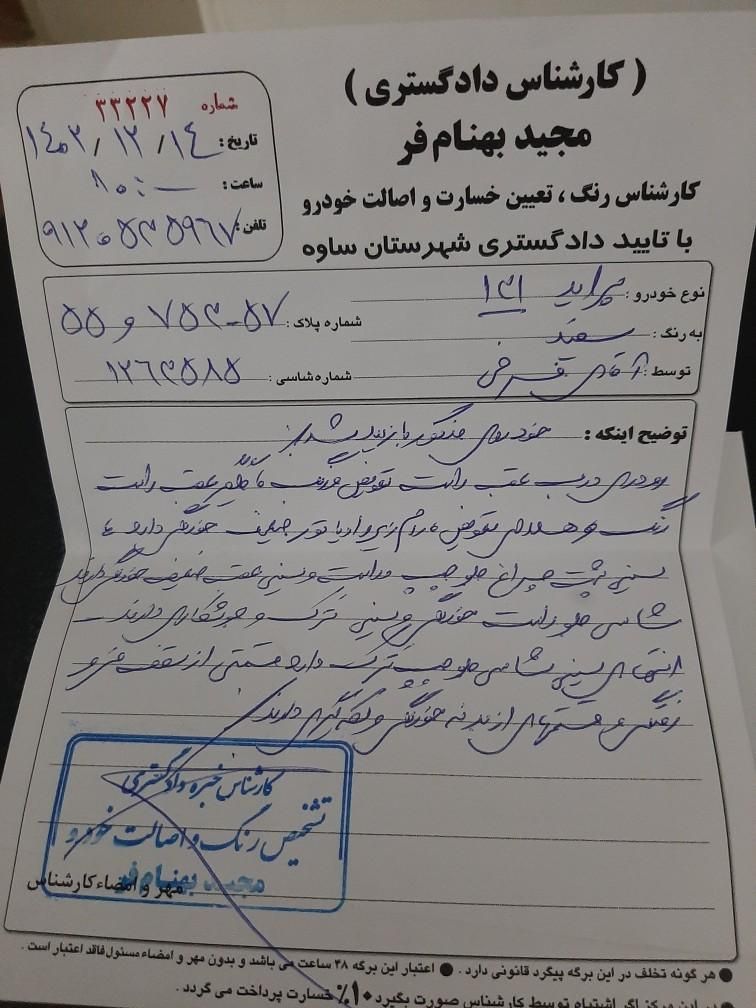 ( کارشناس دادگستری )
مجید بهنام فر
کارشناس رنگ ، تعیین خسارت و اصالت خودرو
با تایید دادگستری شهرستان ساوه
شماره ۳۳۲۲۷
تاریخ : ۱۴۰۳/۱۲/۱۴
ساعت :
تلفن :
نوع خودرو : پراید ۱۳۱
به رنگ : سفید
شماره پلاک :
توسط : آقای
شماره شاسی :
توضیح اینکه : خودروی مذکور بازدید شد
رودری درب عقب راست تعویض گلگیر عقب راست
رنگ و تعویض رام زیر رادیاتور خوردگی دارد
سینی پشت چراغ جلو چپ و راست و سینی عقب ضعیف خوردگی دارند
شاسی جلو راست خوردگی و سینی ترک و جوشکاری دارند
انتهای سینی شاسی جلو چپ ترک دارد قسمتی از سقف فرو
رفتگی و قسمتهای از بدنه خوردگی و لکه گیری دارند
کارشناس خبره دادگستری
تشخیص رنگ و اصالت خودرو
مجید بهنام فر
مهر و امضاء کارشناس
● هر گونه تخلف در این برگه پیگرد قانونی دارد . ● اعتبار این برگه ۴۸ ساعت می باشد و بدون مهر و امضاء مسئول فاقد اعتبار است .
● در این مرکز اگر اشتباه توسط کارشناس صورت بگیرد ۱۰٪ خسارت پرداخت می گردد .